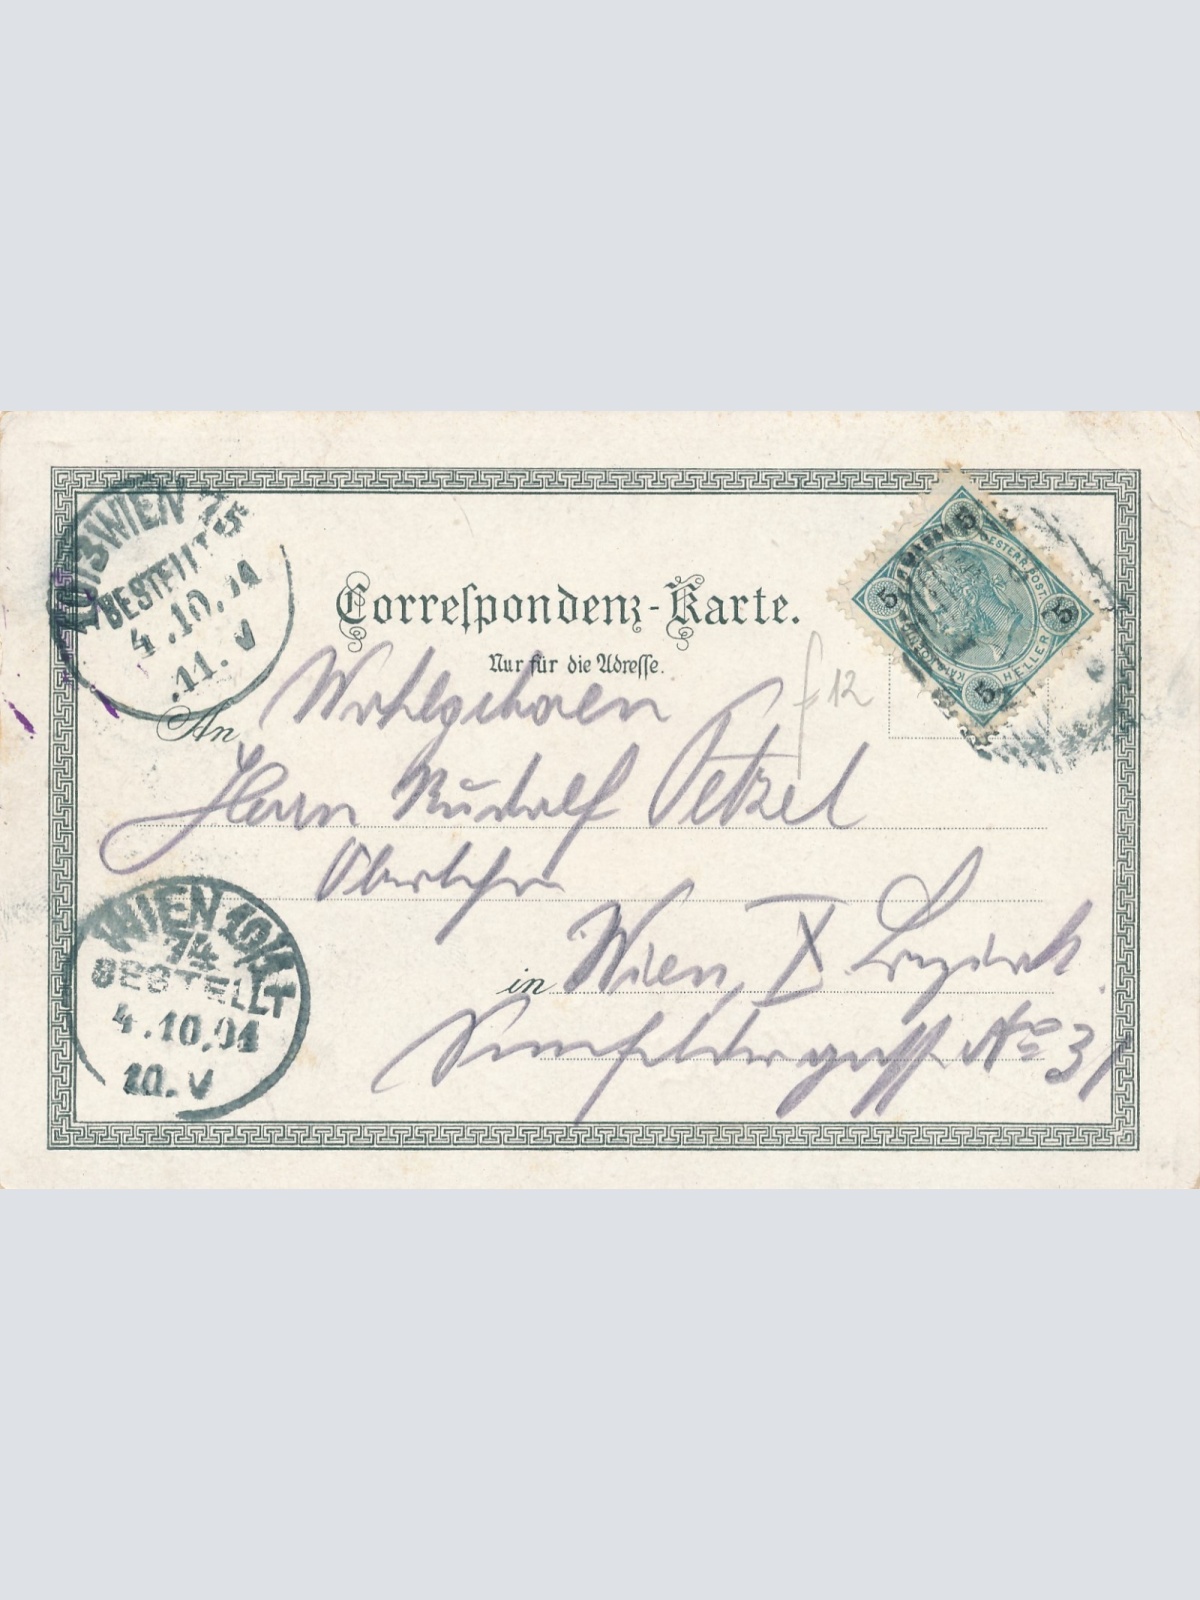 WIEN
BESTELLT
4.10.
.11.V
Correspondenz-Karte.
Nur für die Adresse.
OESTERR. POST.
5 5 5 5
HELLER
f 12
An Wohlgeboren
Herrn Rudolf Petzel
Oberlehrer
in Wien, X Bezirk
No 31
WIEN 10/1
14
BESTELLT
4.10.01
10.V